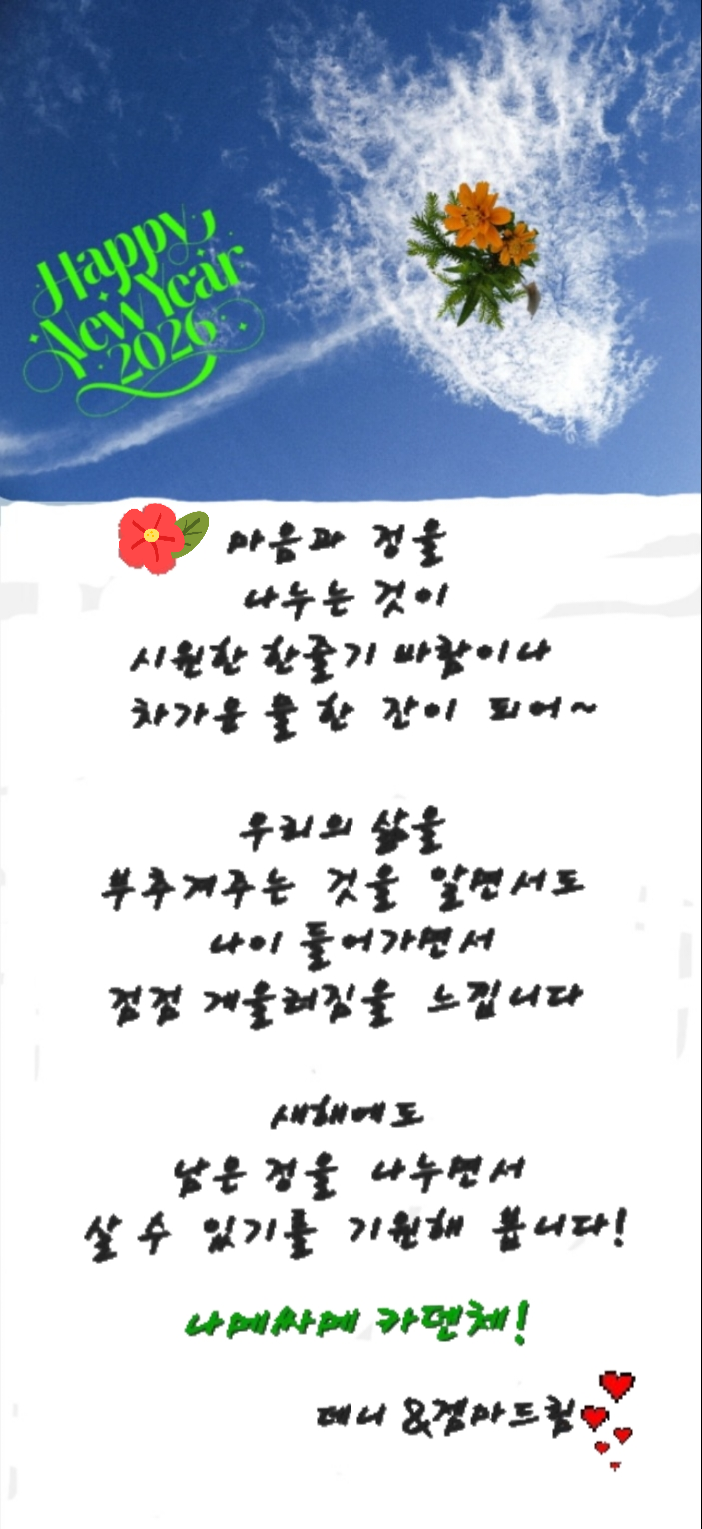 Happy
New Year
2026
마음과 정을
나누는 것이
시원한 한줄기 바람이나
차가운 물 한 잔이 되어~
우리의 삶을
부추겨주는 것을 알면서도
나이 들어가면서
점점 게을러짐을 느낍니다
새해에도
남은 정을 나누면서
살 수 있기를 기원해 봅니다!
나메싸메 카덴체!
데니 &젬마드림